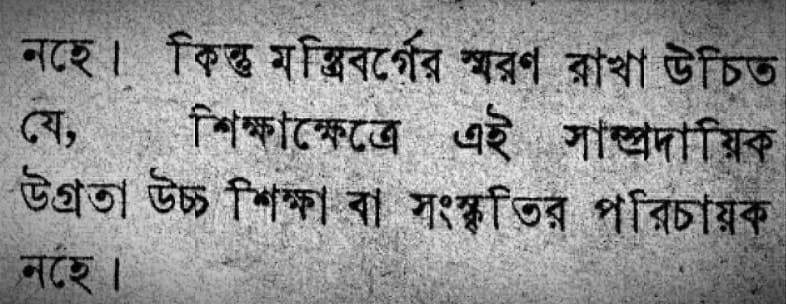 নহে। কিন্তু মন্ত্রিবর্গের স্মরণ রাখা উচিত
যে, শিক্ষাক্ষেত্রে এই সাম্প্রদায়িক
উগ্রতা উচ্চ শিক্ষা বা সংস্কৃতির পরিচায়ক
নহে।